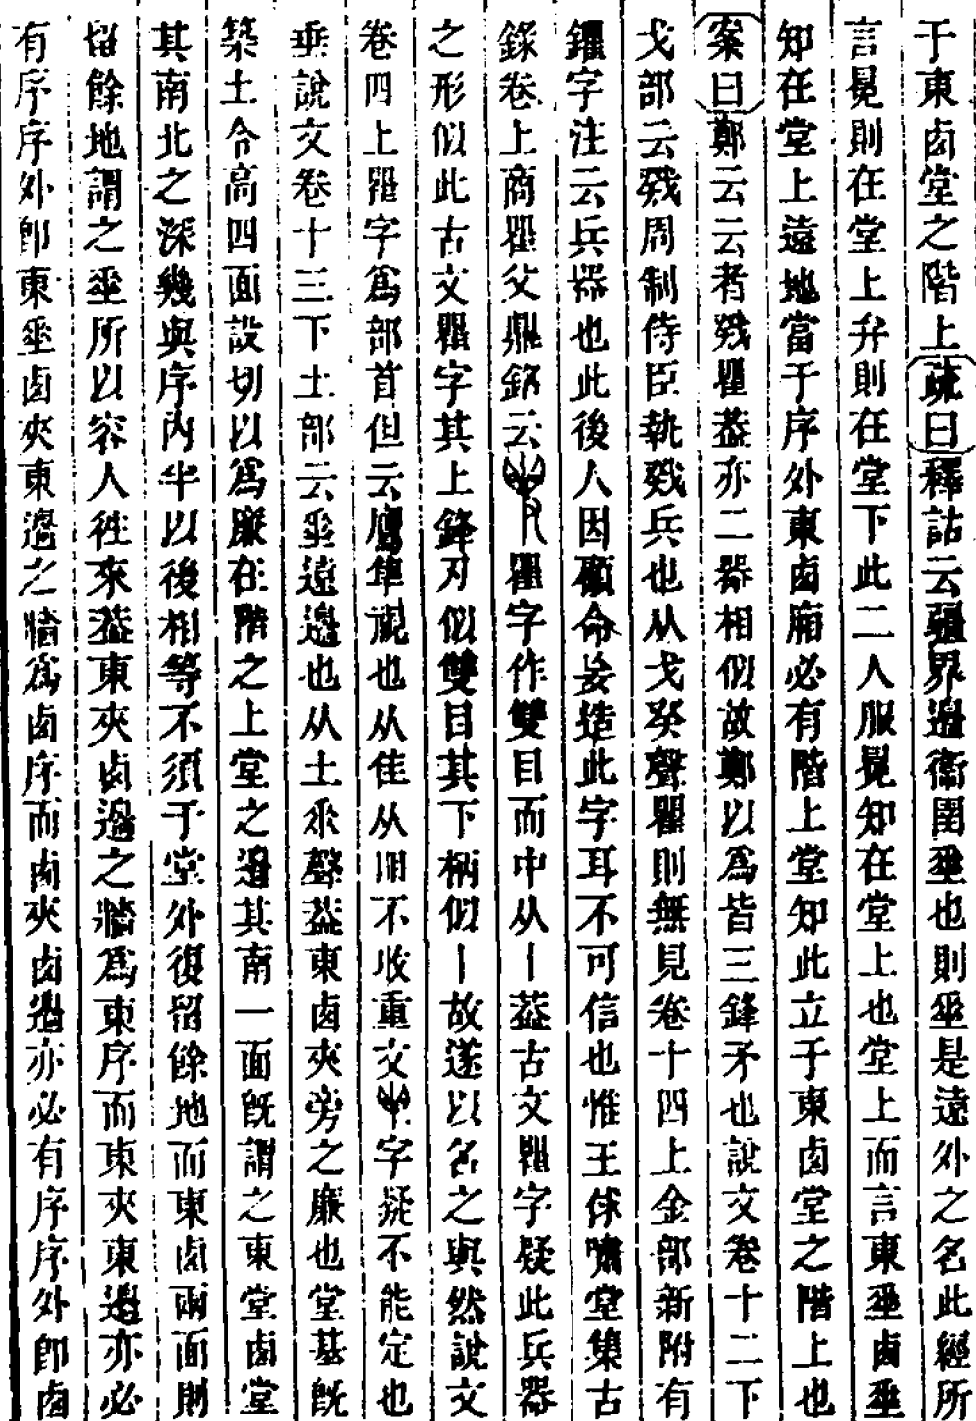 于東卤堂之階上疏曰釋詁云疆界邉衞圉垂也則垂是遠外之名此經所
言冕則在堂上弁則在堂下此二人服冕知在堂上也堂上而言東垂卤垂
知在堂上遠地當于序外東卤廂必有階上堂知此立于東卤堂之階上也
案曰鄭云云者戣瞿葢亦二器相似故鄭以爲皆三鋒矛也說文卷十二下
戈部云戣周制侍臣執戣兵也从戈癸聲瞿則無見卷十四上金部新附有
鑺字注云兵器也此後人因顧命妄造此字耳不可信也惟王俅嘯堂集古
錄卷上商瞿父鼎銘云瞿字作雙目而中从丨葢古文瞿字疑此兵器
之形似此古文瞿字其上鋒刃似雙目其下柄似丨故遂以名之與然說文
卷四上瞿字爲部首但云鷹隼視也从隹从䀠不收重文字疑不能定也
垂說文卷十三下土部云垂遠邉也从土聲葢東卤夾旁之廉也堂基旣
築土令高四面設切以爲廉在階之上堂之邉其南一面旣謂之東堂卤堂
其南北之深幾與序內半以後相等不須于堂外復留餘地而東卤兩面則
留餘地謂之垂所以容人徃來葢東夾卤邉之牆爲東序而東夾東邉亦必
有序序外卽東垂卤夾東邉之牆爲卤序而卤夾卤邉亦必有序序外卽卤